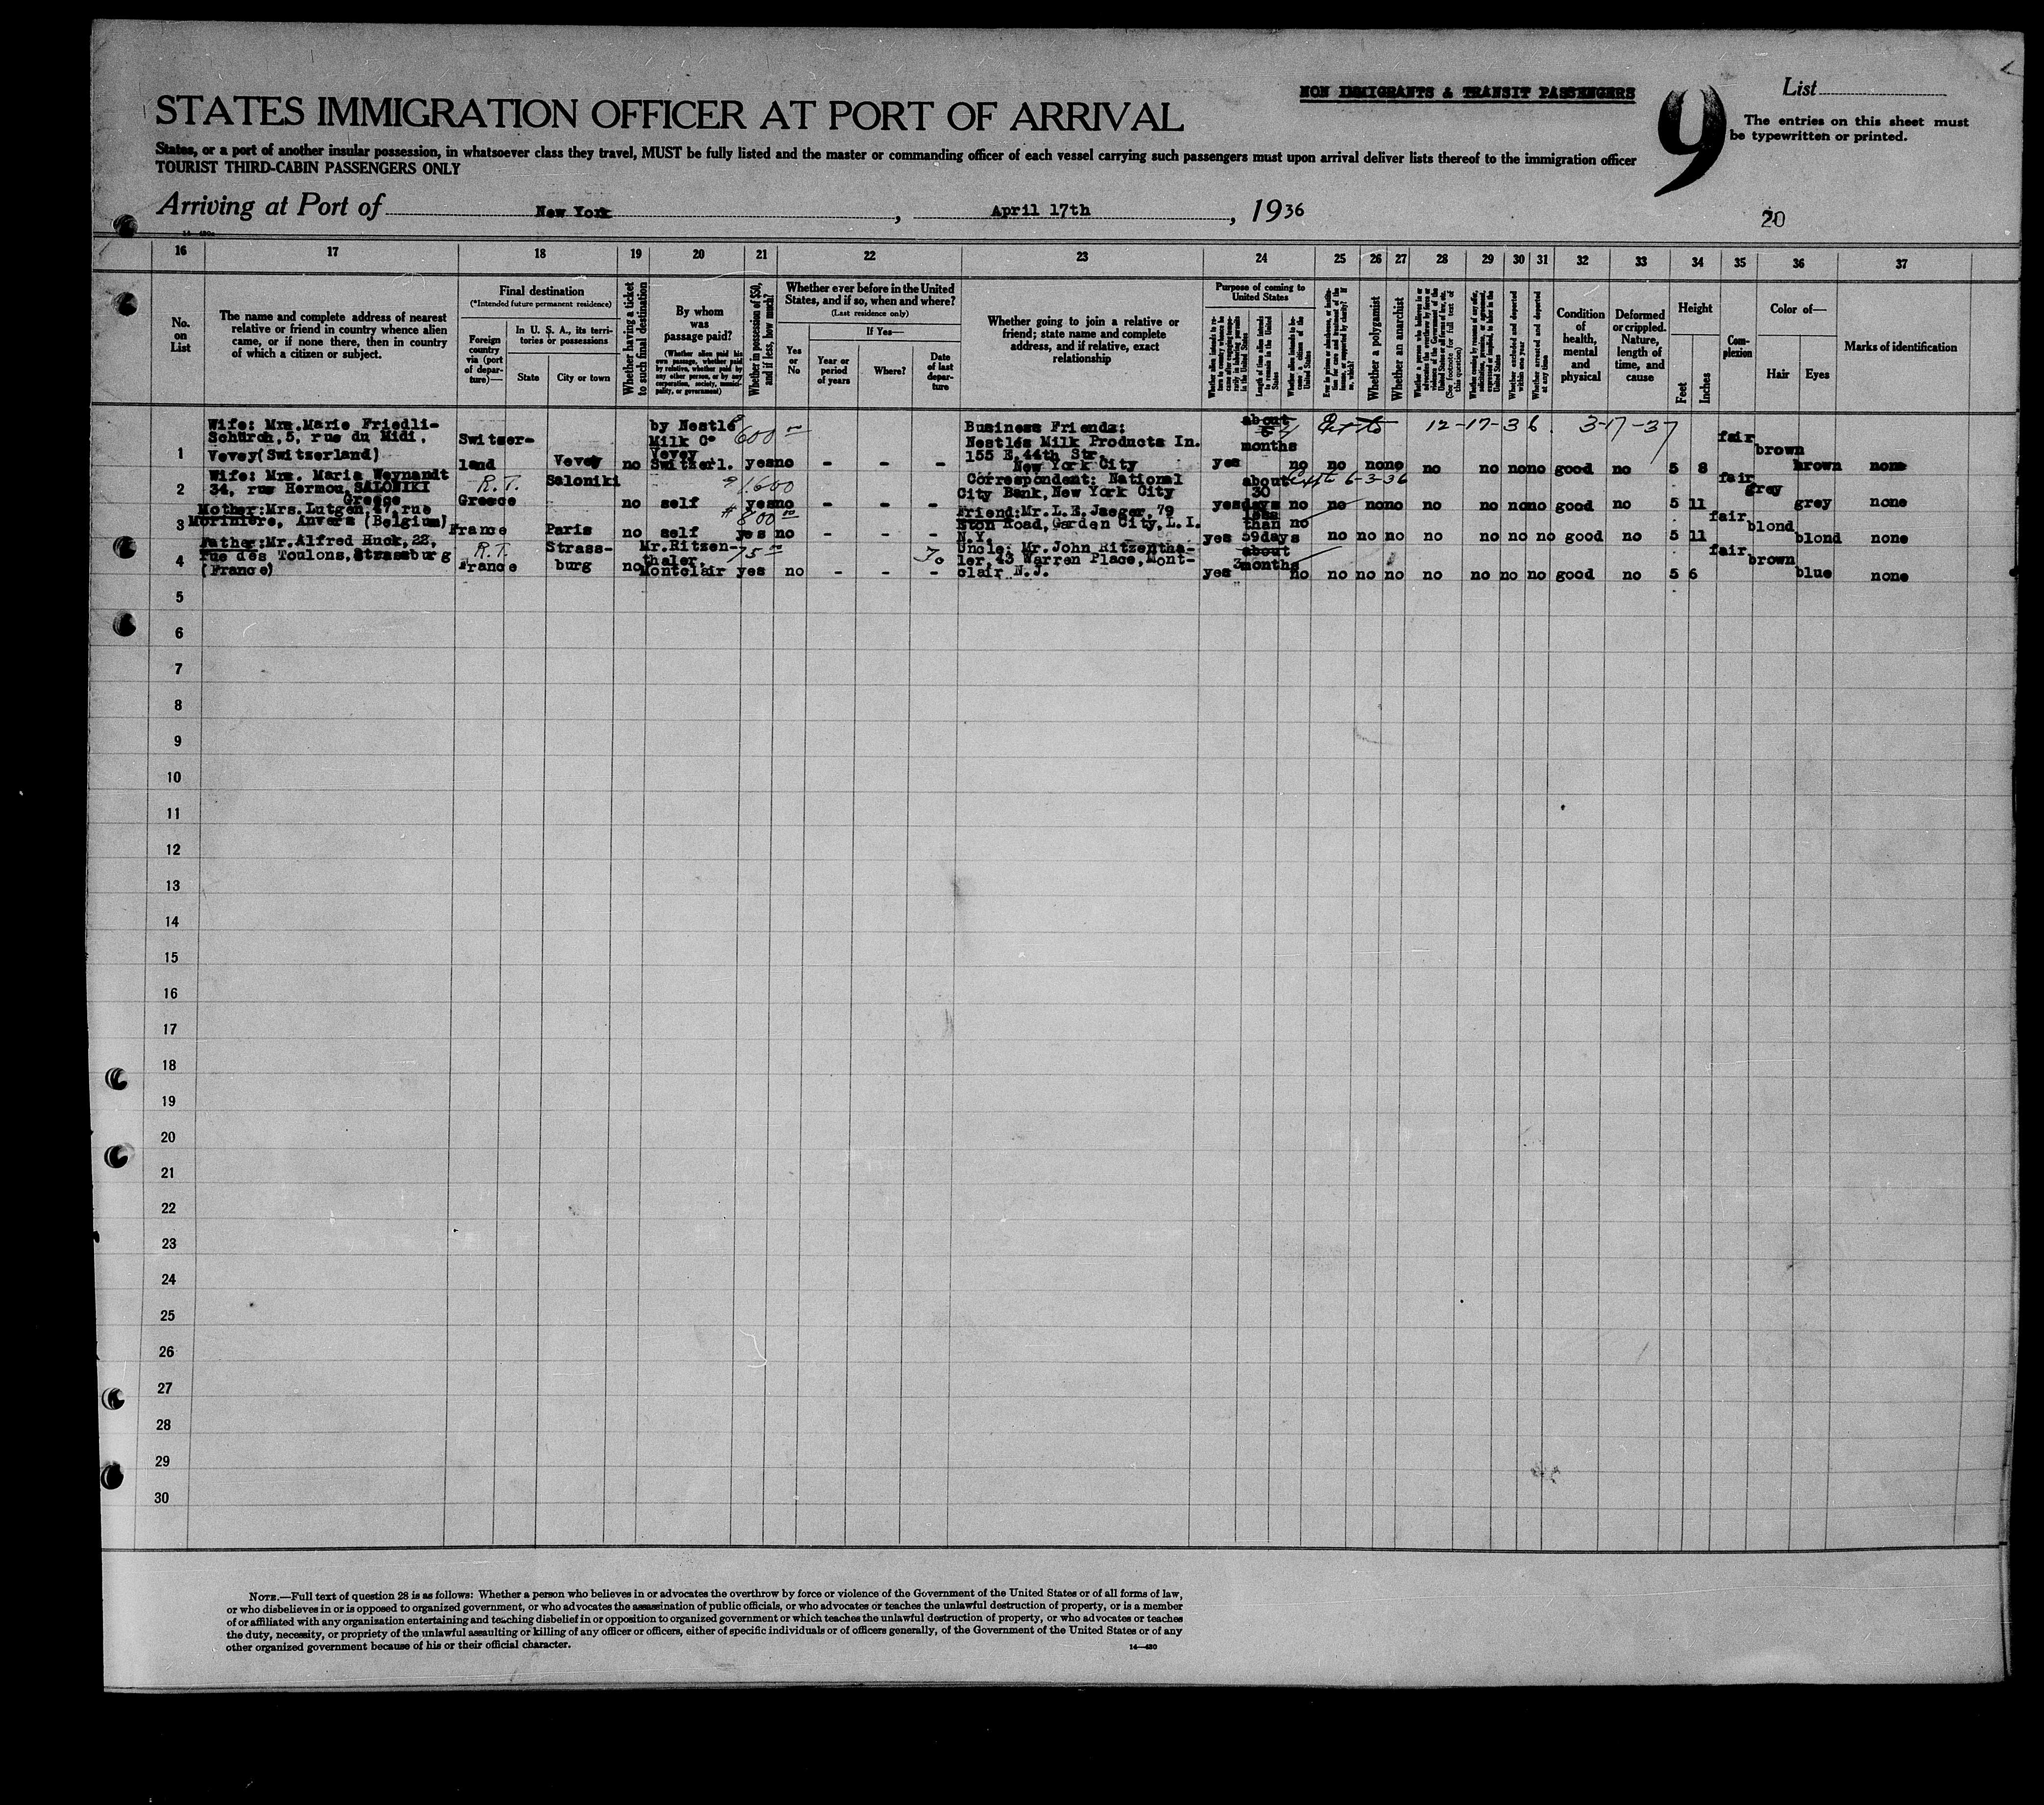 NON IMMIGRANTS & TRANSIT PASSENGERS
List
9
STATES IMMIGRATION OFFICER AT PORT OF ARRIVAL
The entries on this sheet must
be typewritten or printed.
States, or a port of another insular possession, in whatsoever class they travel, MUST be fully listed and the master or commanding officer of each vessel carrying such passengers must upon arrival deliver lists thereof to the immigration officer
TOURIST THIRD-CABIN PASSENGERS ONLY
Arriving at Port of New York, April 17th, 1936
20
16 17 18 19 20 21 22 23 24 25 26 27 28 29 30 31 32 33 34 35 36 37
No.
on
List
The name and complete address of nearest
relative or friend in country whence alien
came, or if none there, then in country
of which a citizen or subject.
Final destination
(*Intended future permanent residence)
Foreign
country
via (port
of depar-
ture)—
In U. S. A., its terri-
tories or possessions
State
City or town
Whether having a ticket
to such final destination
By whom
was
passage paid?
(Whether alien paid his
own passage, whether paid
by relative, whether paid by
any other person, or by any
corporation, society, munic-
ipality, or government)
Whether in possession of $50,
and if less, how much?
Whether ever before in the United
States, and if so, when and where?
(Last residence only)
If Yes—
Yes
or
No
Year or
period
of years
Where?
Date
of last
depar-
ture
Whether going to join a relative or
friend; state name and complete
address, and if relative, exact
relationship
Purpose of coming to
United States
Length of time alien intends
to remain in the United
States
Whether alien intends to be-
come a citizen of the
United States
Whether a polygamist
Whether an anarchist
(See footnote for full text of
this question)
Whether excluded and deported
within one year
Whether arrested and deported
at any time
Condition
of
health,
mental
and
physical
Deformed
or crippled.
Nature,
length of
time, and
cause
Height
Feet
Inches
Com-
plexion
Color of—
Hair
Eyes
Marks of identification
1
Wife: Mrs. Marie Friedli-
Schürch, 5, rue du Midi,
Vevey(Switzerland)
Switzer-
land
Vevey
no
by Nestlé
Milk Co
Vevey
Switzerl.
600
yes no - - -
Business Friends:
Nestlés Milk Products In.
155 E.44th Str.
New York City
yes
about
6
months
no no no no no no no no good no 5 8 fair brown brown none
12-17-36 3-17-37
2
Wife: Mrs. Maria Weynandt
34, rue Hermou, SALONIKI
Greece
R.T.
Greece
Saloniki
no self
1600
yes no - - -
Correspondent: National
City Bank, New York City
yes
about
30
days
6-3-36
no no no no no no no no good no 5 11 fair grey grey none
3
Mother:Mrs.Lutgen,47,rue
Moriniere, Anvers (Belgium)
France Paris no self
$800
yes no - - -
Friend:Mr.L.E.Jaeger,79
ston Road, Garden City, L.I.
N.Y.
yes
less
than
59days
no no no no no no no no good no 5 11 fair blond blond none
4
Father:Mr.Alfred Huck,22,
rue des Toulons,Strassburg
(France)
R.T.
France
Strass-
burg
no
Mr.Ritzen-
thaler,
Montclair
75
yes no - - -
Uncle: Mr. John Ritzentha-
ler, 43 Warren Place, Mont-
clair N.J.
yes
about
3months
no no no no no no no no good no 5 6 fair brown blue none
5
6
7
8
9
10
11
12
13
14
15
16
17
18
19
20
21
22
23
24
25
26
27
28
29
30
NOTE.—Full text of question 28 is as follows: Whether a person who believes in or advocates the overthrow by force or violence of the Government of the United States or of all forms of law,
or who disbelieves in or is opposed to organized government, or who advocates the assassination of public officials, or who advocates or teaches the unlawful destruction of property, or is a member
of or affiliated with any organization entertaining and teaching disbelief in or opposition to organized government or which teaches the unlawful destruction of property, or who advocates or teaches
the duty, necessity, or propriety of the unlawful assaulting or killing of any officer or officers, either of specific individuals or of officers generally, of the Government of the United States or of any
other organized government because of his or their official character.
14—430